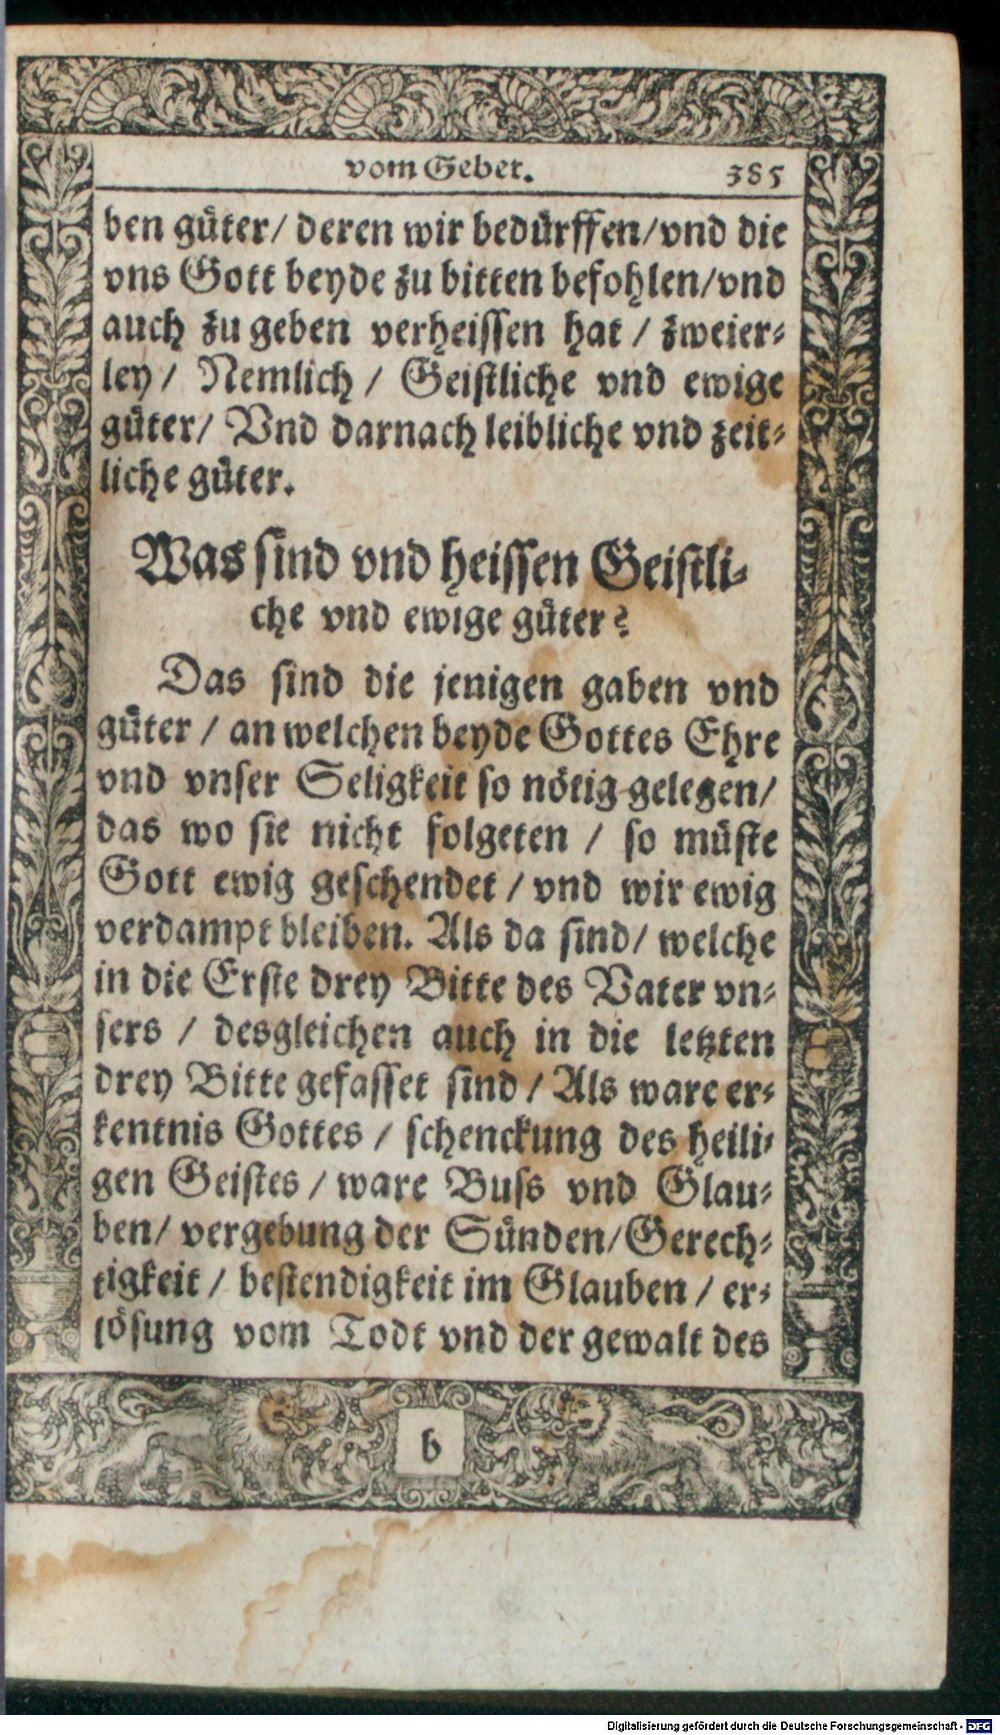 vom Gebet. 385
ben güter/ deren wir bedürffen/vnd die
vns Gott beyde zu bitten befohlen/vnd
auch zu geben verheissen hat / zweier-
ley / Nemlich / Geistliche vnd ewige
güter/ Vnd darnach leibliche vnd zeit-
liche güter.
Was sind vnd heissen Geistli-
che vnd ewige güter?
Das sind die jenigen gaben vnd
güter / an welchen beyde Gottes Ehre
vnd vnser Seligkeit so nötig gelegen/
das wo sie nicht folgeten / so müste
Gott ewig geschendet / vnd wir ewig
verdampt bleiben. Als da sind/ welche
in die Erste drey Bitte des Vater vn-
sers / desgleichen auch in die letzten
drey Bitte gefasset sind / Als ware er-
kentnis Gottes / schenckung des heili-
gen Geistes / ware Buss vnd Glau-
ben/ vergebung der Sünden/Gerech-
tigkeit / bestendigkeit im Glauben / er-
lösung vom Todt vnd der gewalt des
b
Digitalisierung gefördert durch die Deutsche Forschungsgemeinschaft - DFG